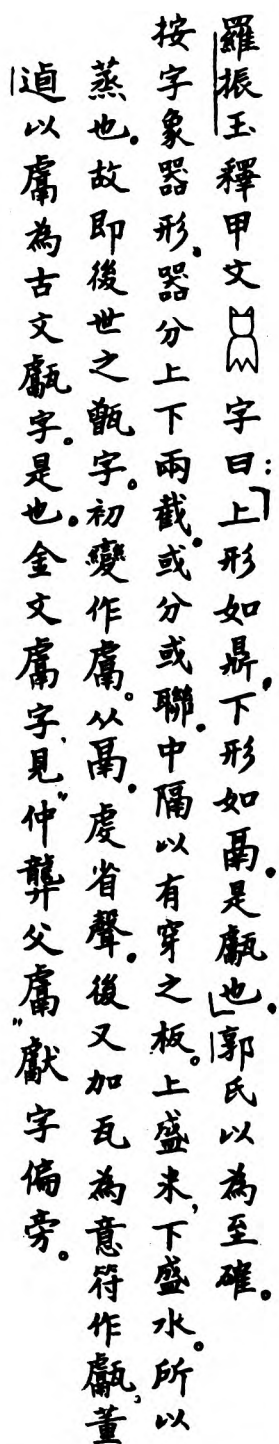 羅振玉釋甲文字曰：「上形如鼎，下形如鬲，是甗也。」郭氏以為至確。
按字象器形，器分上下兩截，或分或聯，中隔以有穿之板。上盛米，下盛水。所以
蒸也。故即後世之甑字。初變作鬳。从鬲，虔省聲。後又加瓦為意符作甗，董
逌以鬳為古文甗字。是也。金文鬳字，見“仲龏父鬳”獻字偏旁。